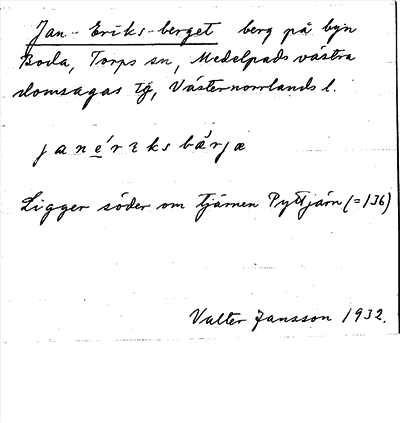 Jan-Eriks-berget berg på byn
Boda, Torps sn, Medelpads västra
domsagas tg, Västernorrlands l.
janériksbärjæ
Ligger söder om tjärnen Pyttjärn (=136)
Valter Jansson 1932.